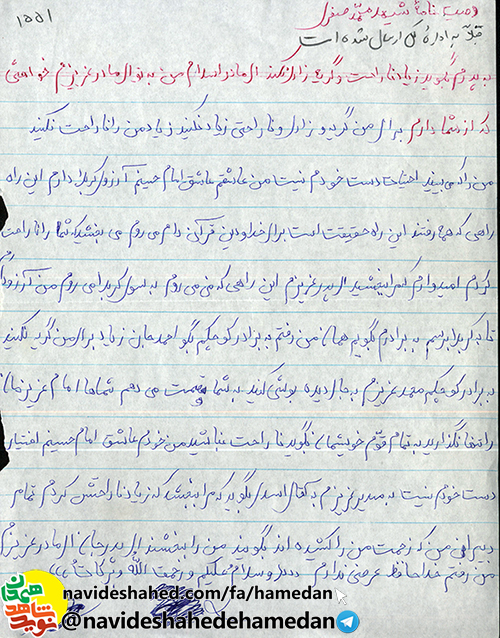 ۱۵۵۱
وصیت نامهٔ شهید محمد صفری
قبلاً به اداره کل ارسال شده است
به پدرم بگوید زیاد ناراحت و گریه زاری نکند ای مادر اسلام من به تو ای مادر عزیزم خواهشی
که از شما دارم برای من گریه و زاری و ناراحتی زیاد نکنید زیاد من را ناراحت نکنید
من را که می بینید اختیار دست خودم نیست من عاشقم عاشق امام حسینم آرزوی کربلا دارم این راه
راهی که همه رفتند این راه حقیقت است برای خدا و دین قرآن دارم می روم می بخشید که شما را ناراحت
کردم امیدوارم که مرا ببخشید ای پدر عزیزم این راهی که من می روم به سوی کربلا می روم من آرزو دارم
تا به کربلا برسم به برادرم بگویم همان من رفتم به برادر کوچکم بگو احمد جان زیاد برای من گریه نکنید
به برادر کوچکم محمد عزیزم به جای دیده بوسی کنید به شما قسمت می دهم شماها امام عزیزمان
را تنها نگذارید به تمام قوم خویشمان بگوید ناراحت نباشید من خودم عاشق امام حسینم اختیار
دست خودم نیست به مدیر عزیزم به آقای اسدی بگوید که مرا ببخشد که زیاد ناراحتش کردم تمام
دبیرانی من که زحمت من را کشیده اند بگویند من را ببخشند ای پدر جان ای مادر عزیزم
من رفتم خداحافظ عرضی ندارم دیگر والسلام علیکم و رحمت الله و برکاته
نوید شاهد همدان
navideshahed.com/fa/hamedan
@navideshahedehamedan